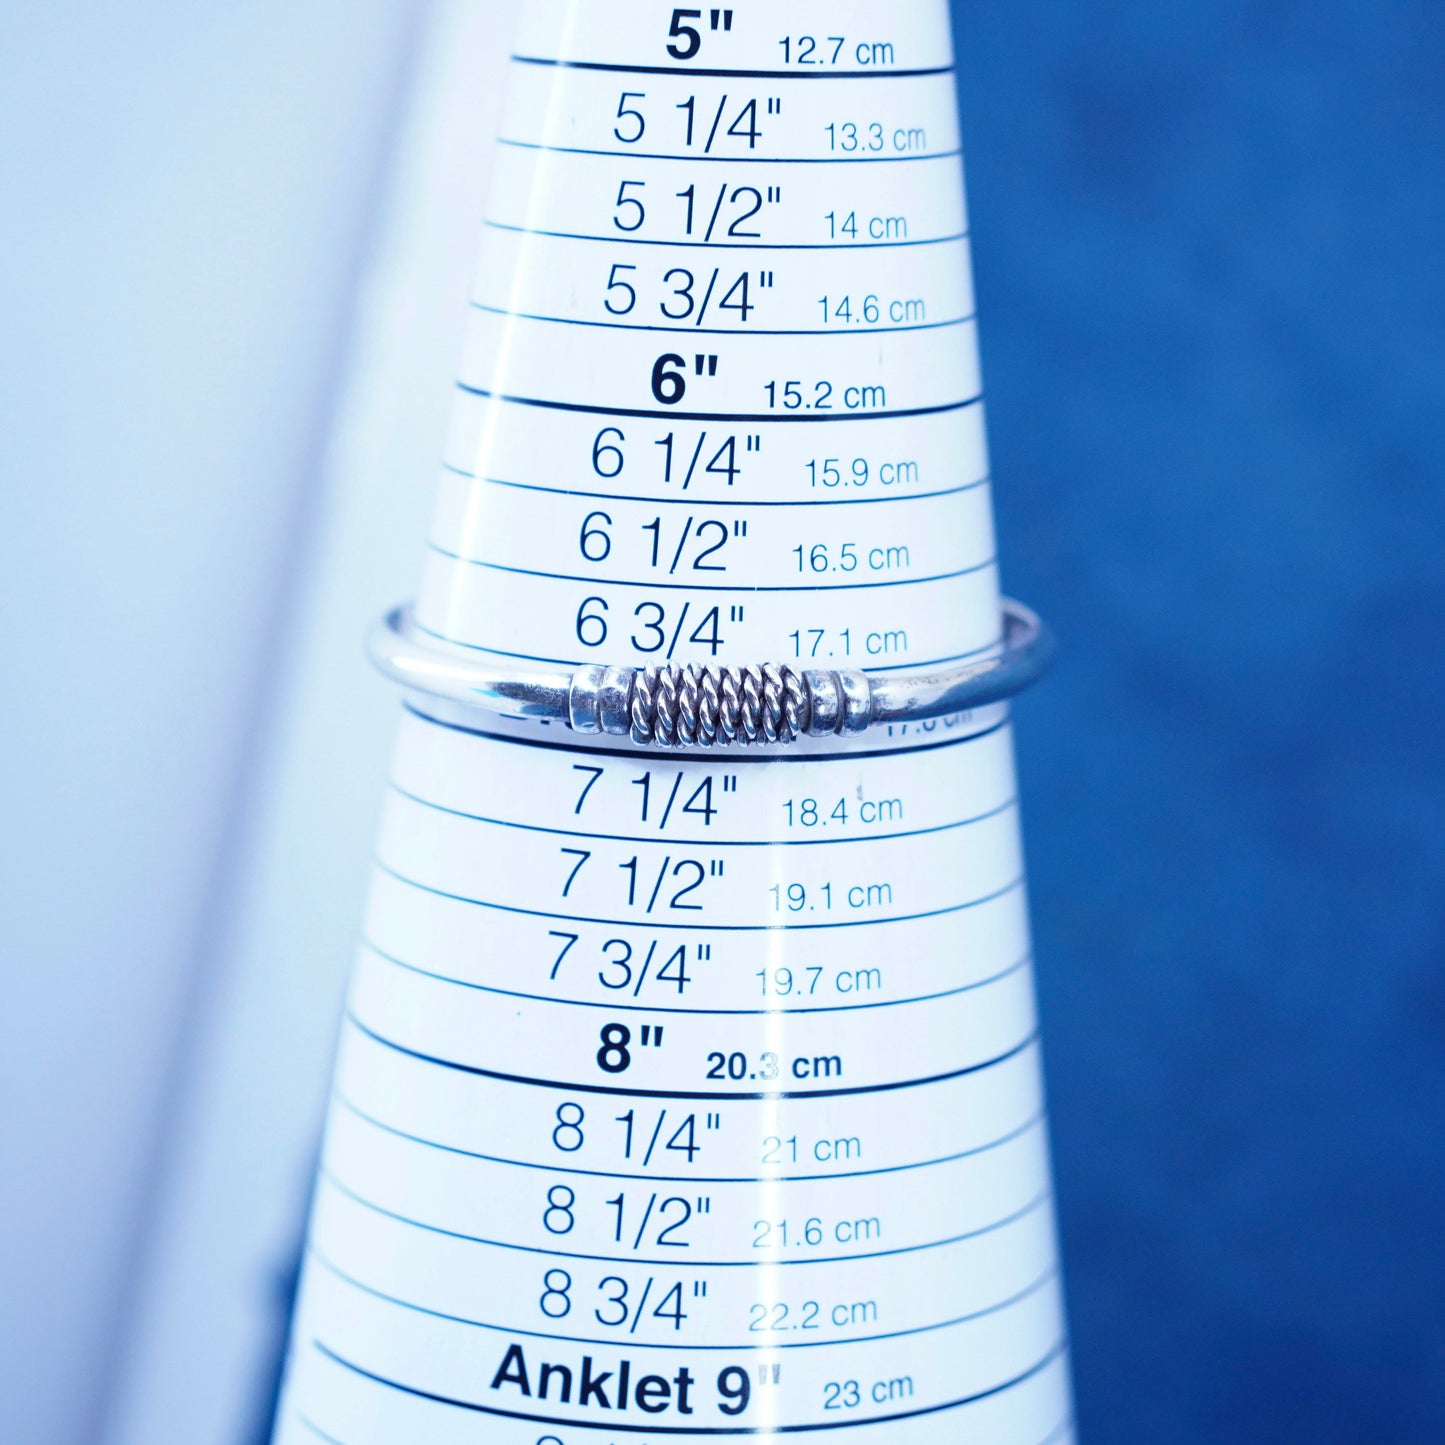 5" 12.7 cm
5 1/4" 13.3 cm
5 1/2" 14 cm
5 3/4" 14.6 cm
6" 15.2 cm
6 1/4" 15.9 cm
6 1/2" 16.5 cm
6 3/4" 17.1 cm
7 1/4" 18.4 cm
7 1/2" 19.1 cm
7 3/4" 19.7 cm
8" 20.3 cm
8 1/4" 21 cm
8 1/2" 21.6 cm
8 3/4" 22.2 cm
Anklet 9" 23 cm